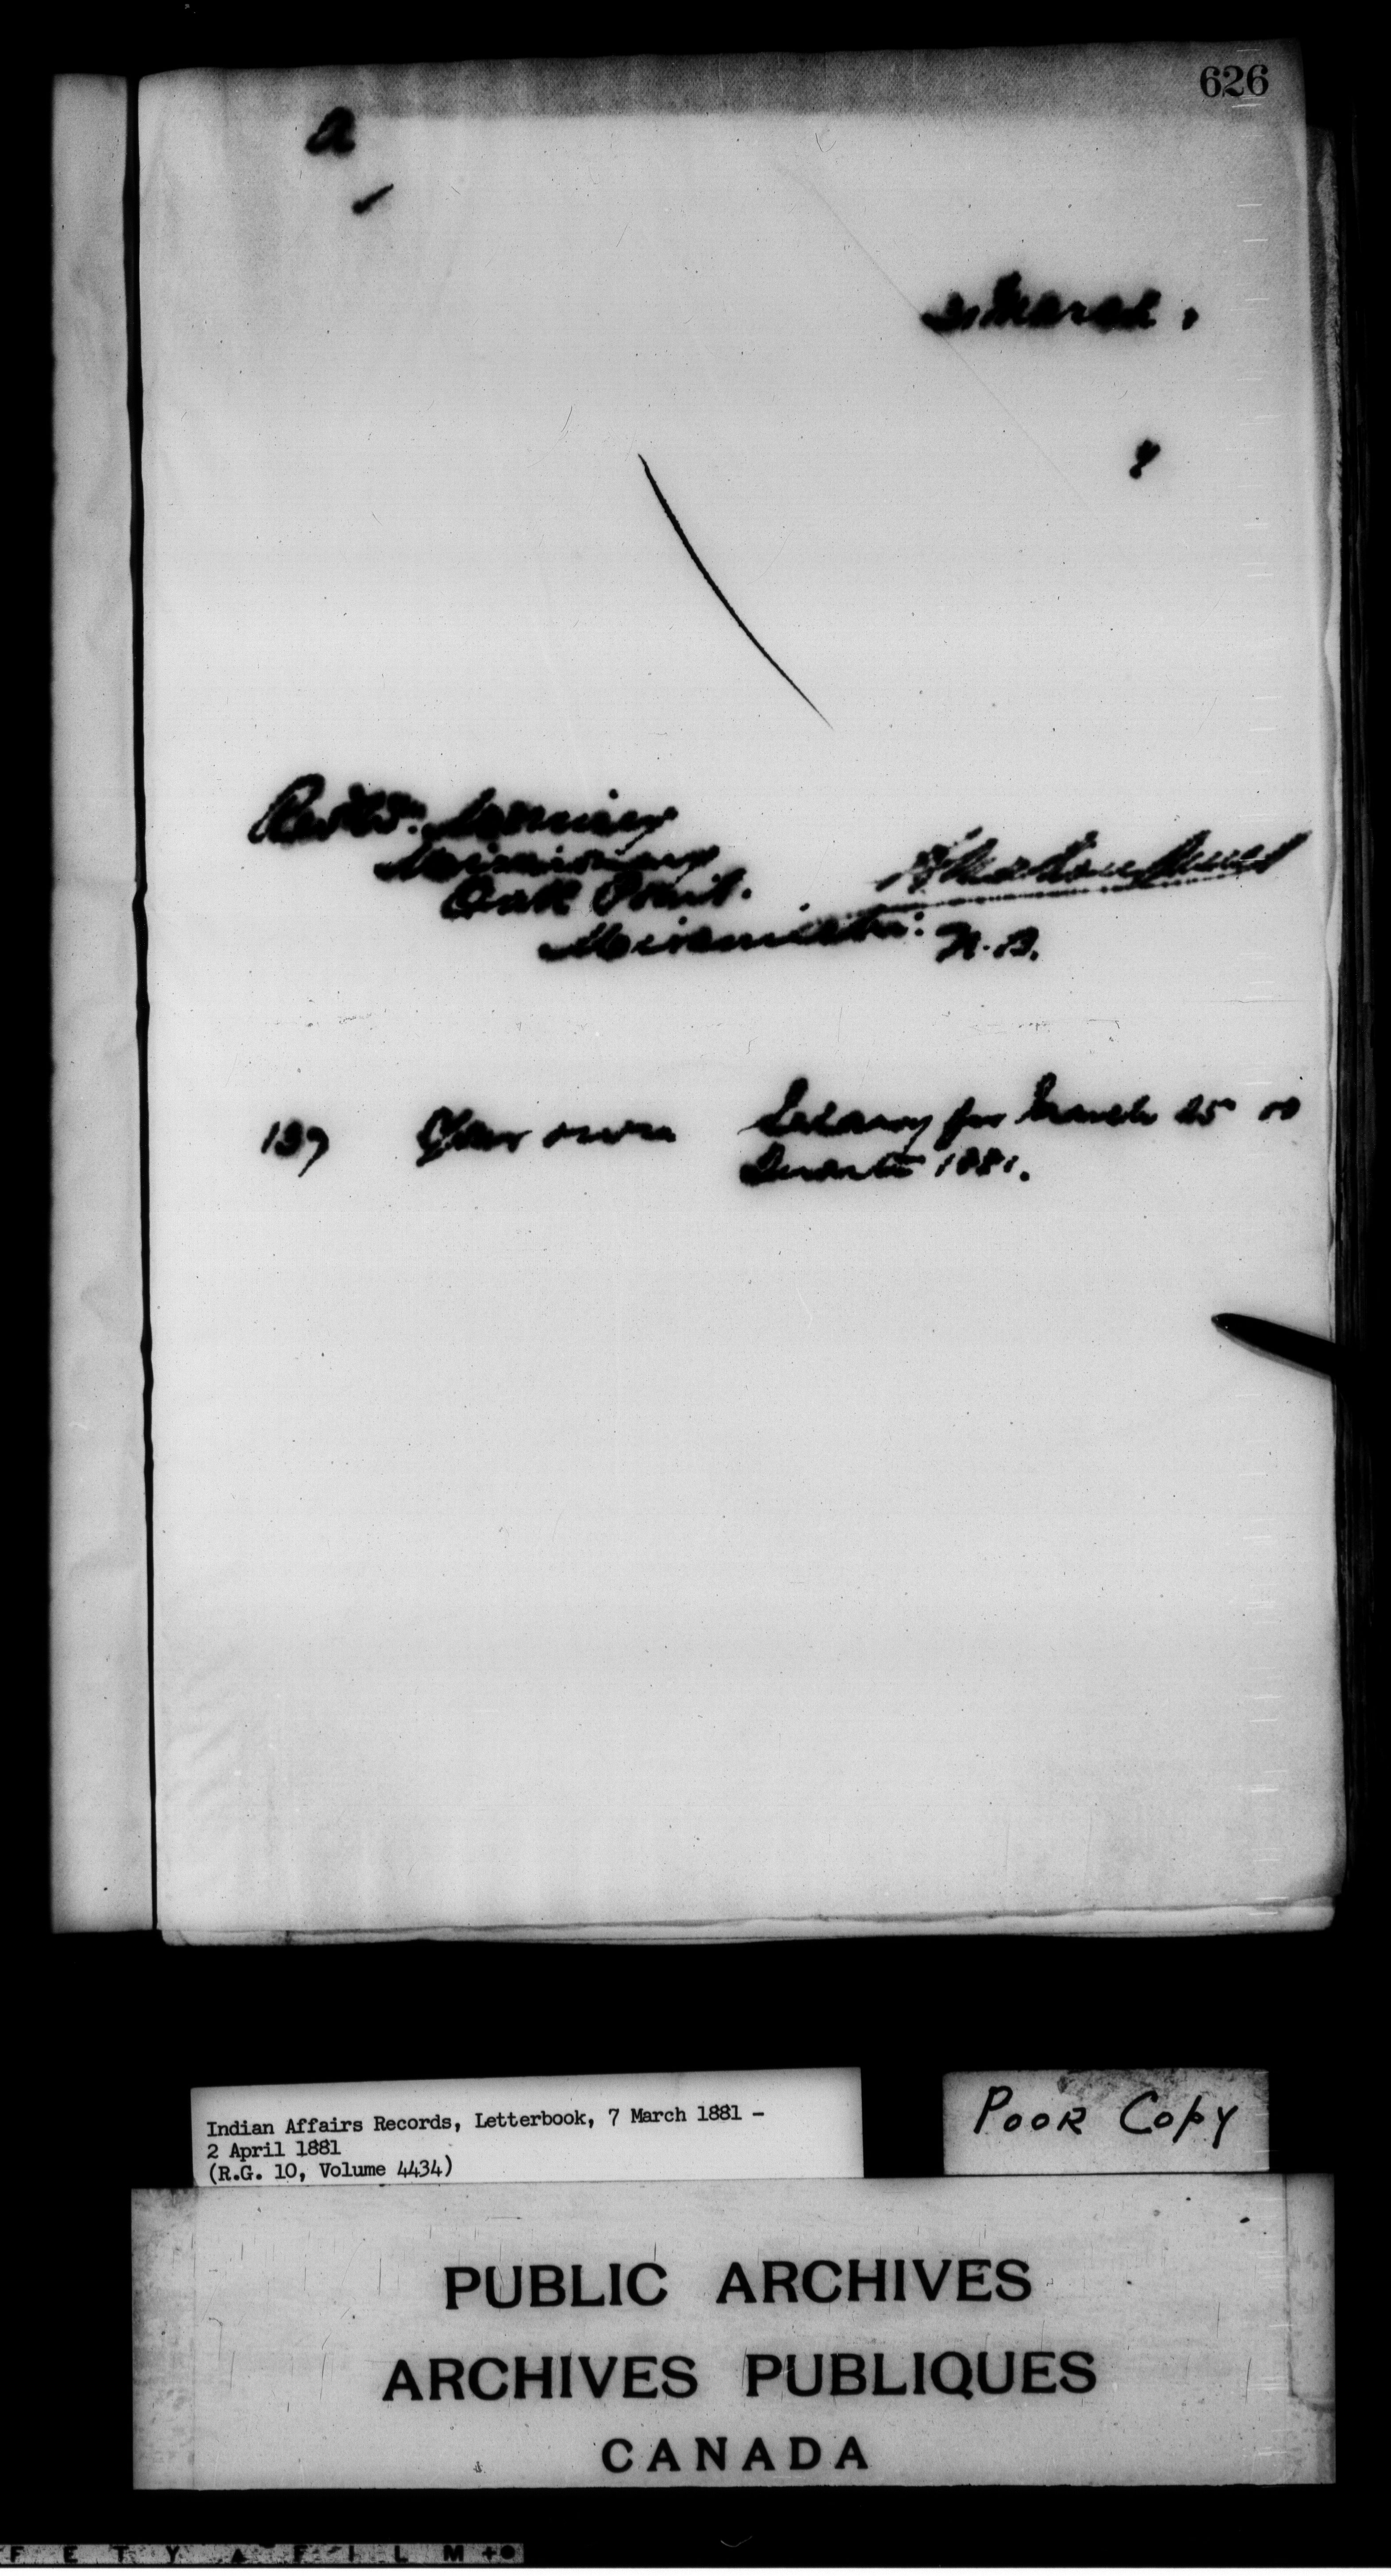 626
a
31 March.
Rev Wm. Morrisey
Missionary
Oak Point.
Miramichi. N.B.
139 Your own Salary for March 25 00
Quarter 1881.
Indian Affairs Records, Letterbook, 7 March 1881 -
2 April 1881
(R.G. 10, Volume 4434)
POOR COPY
PUBLIC ARCHIVES
ARCHIVES PUBLIQUES
CANADA
FETY FILM